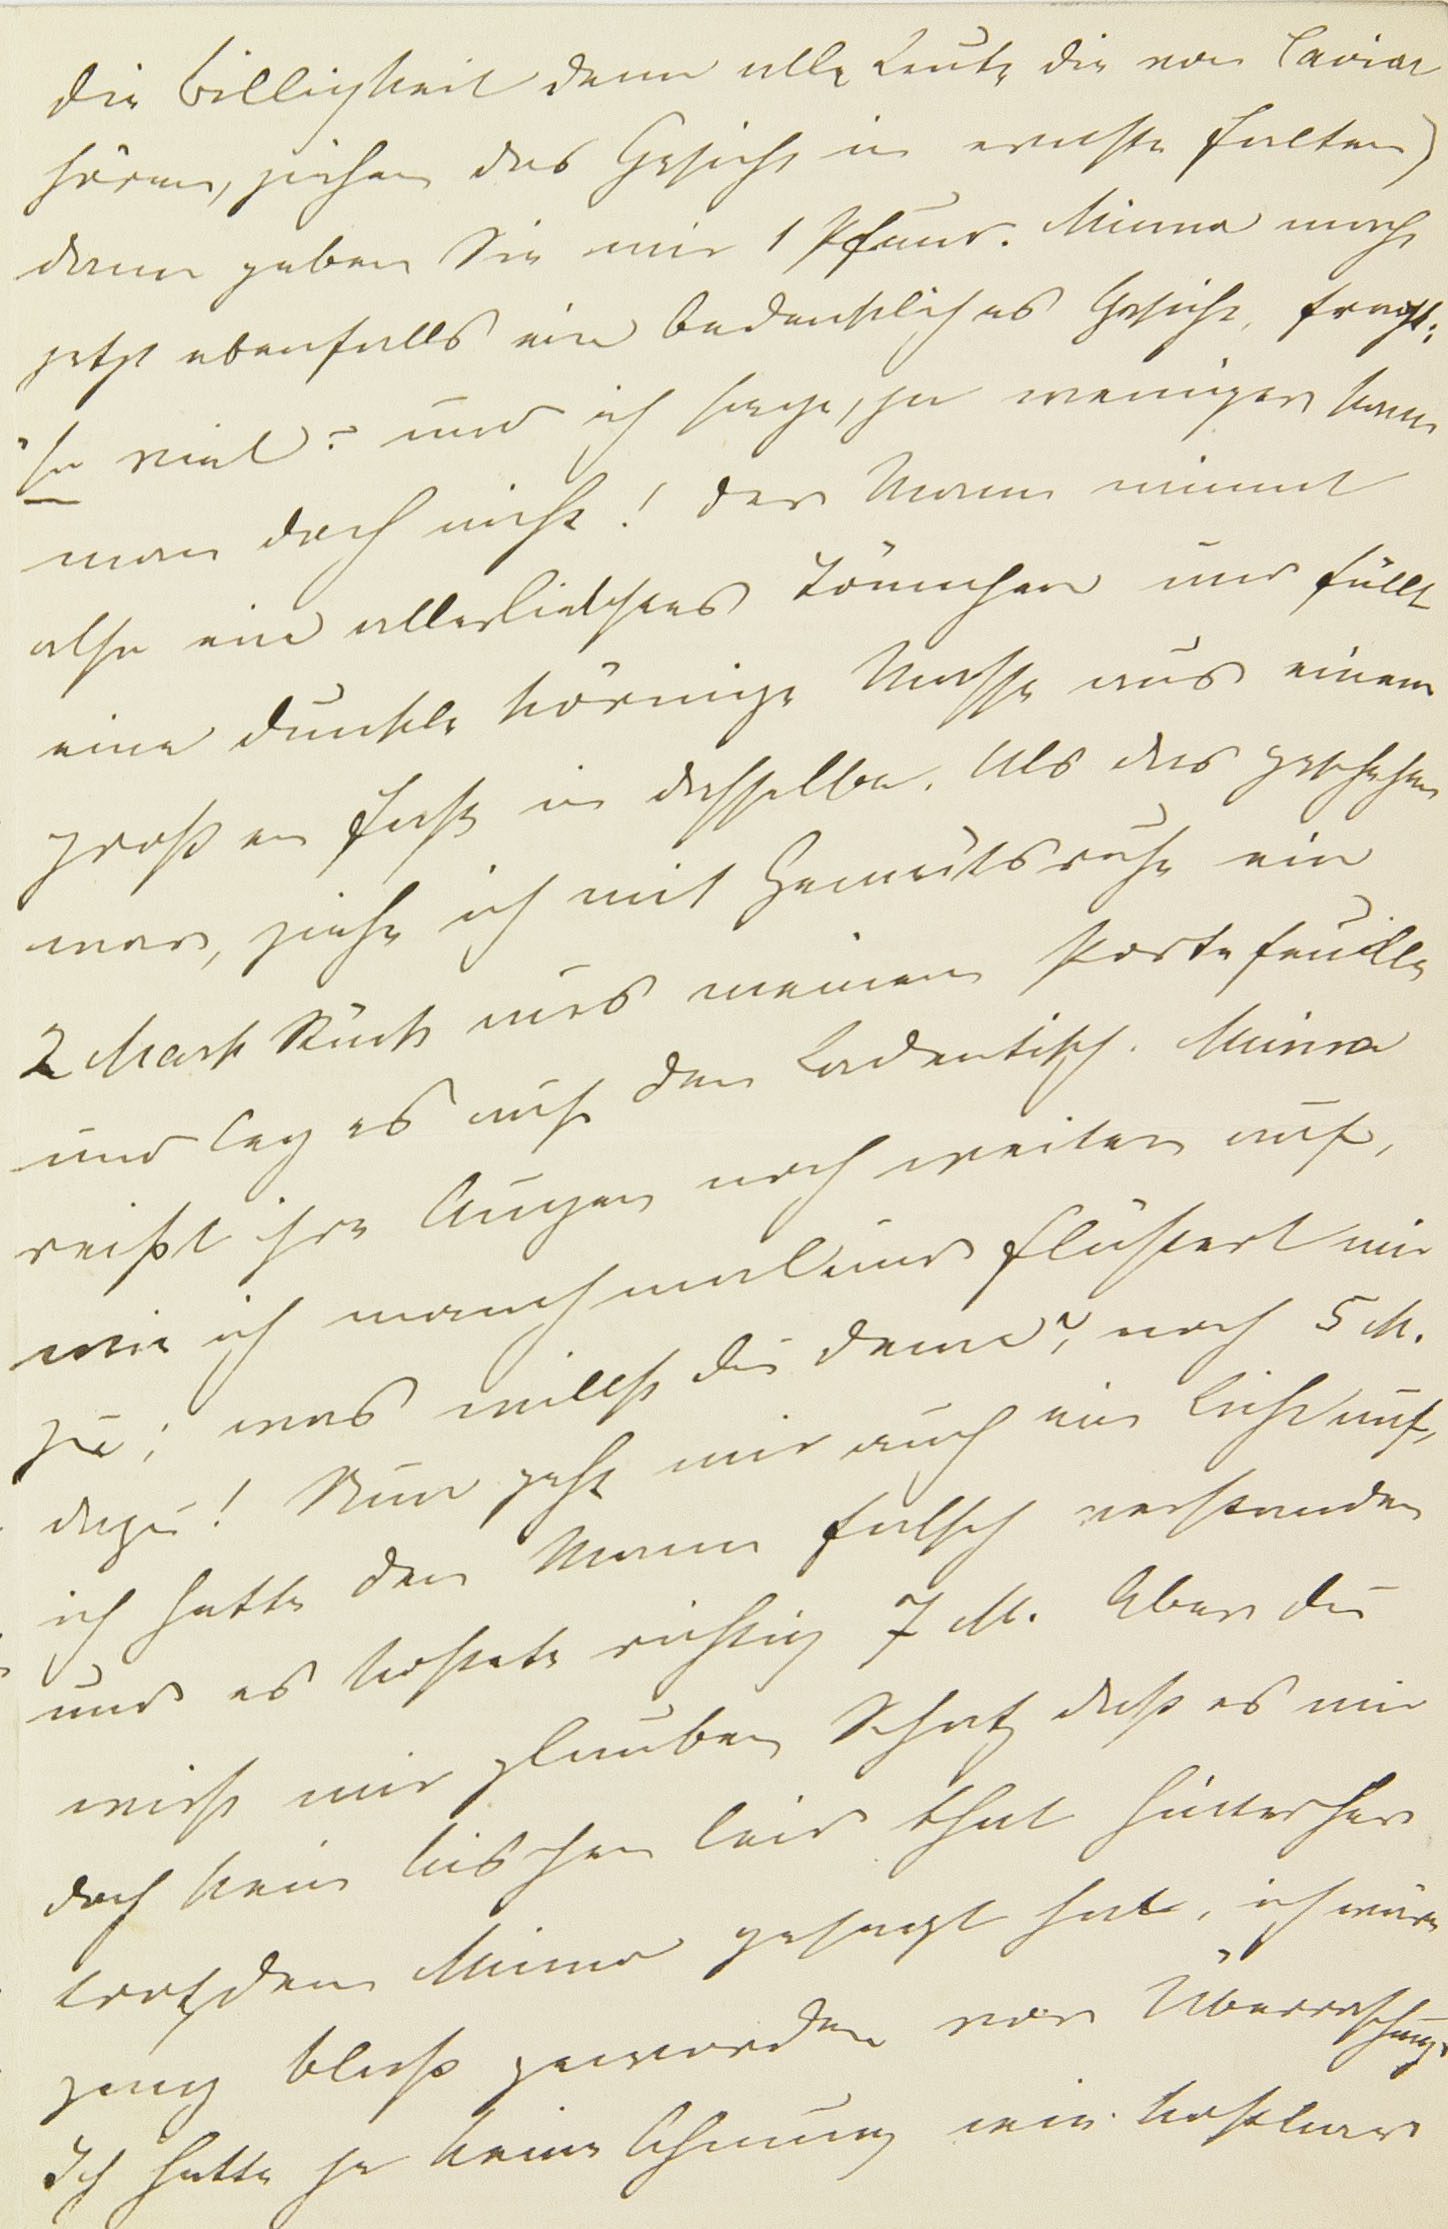 die Billigkeit denn alle Leute die von Caviar
hören, ziehen das Gesicht in ernste Falten)
dann geben Sie mir 1 Pfund. Minna macht
jetzt ebenfalls ein bedenkliches Gesicht, fragt:
"so viel? und ich sage, ja weniger kann
man doch nicht! Der Mann nimmt
also ein allerliebstes Tönnchen und füllt
eine dunkle körnige Masse aus einem
großen Faße in dasselbe. Als das geschehen
war, ziehe ich mit Gemütsruhe ein
2 Mark Stück aus meinem Portefeuille
und leg es auf den Ladentisch. Minna
reißt ihre Augen noch weiter auf,
wie ich manchmal und flüstert mir
zu; was willst du denn", noch 5 M.
dazu! Nun geht mir auch ein Licht auf,
ich hatte den Mann falsch verstanden
und es kostete richtig 7 M. Aber du
wirst mir glauben Schatz daß es mir
doch kein bischen leid that hinterher
trotzdem Minna gesagt hat, ich wäre
ganz blaß geworden vor Überraschung.
Ich hatte ja keine Ahnung wie kostbar